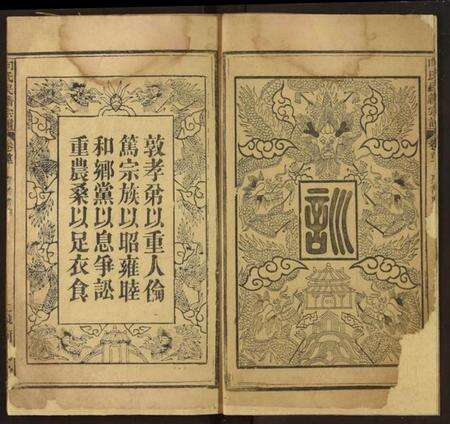 訓
敦孝弟以重人倫
篤宗族以昭雍睦
和鄉黨以息爭訟
重農桑以足衣食